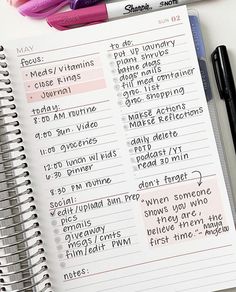 Sharpie
SUN 02
MAY
focus:
Meds/vitamins
close Rings
Journal
today:
8:00 AM routine
9:00 Sun. Video
11:00 groceries
12:00 lunch w/ kids
5:30 Dinner
8:30 PM routine
social:
edit/upload Sun. Prep
pics
emails
giveaway
msgs/cmts
film/edit PWM
notes:
to do:
put up laundry
plant shrubs
bathe dogs
dogs' nails
fill med container
groc. list
groc. shopping
Makse Actions
Makse Reflections
daily delete
POTD
podcast/YT
read 30 min
don't forget
"When someone
shows you who
they are,
believe them the
first time."
- Maya
Angelou